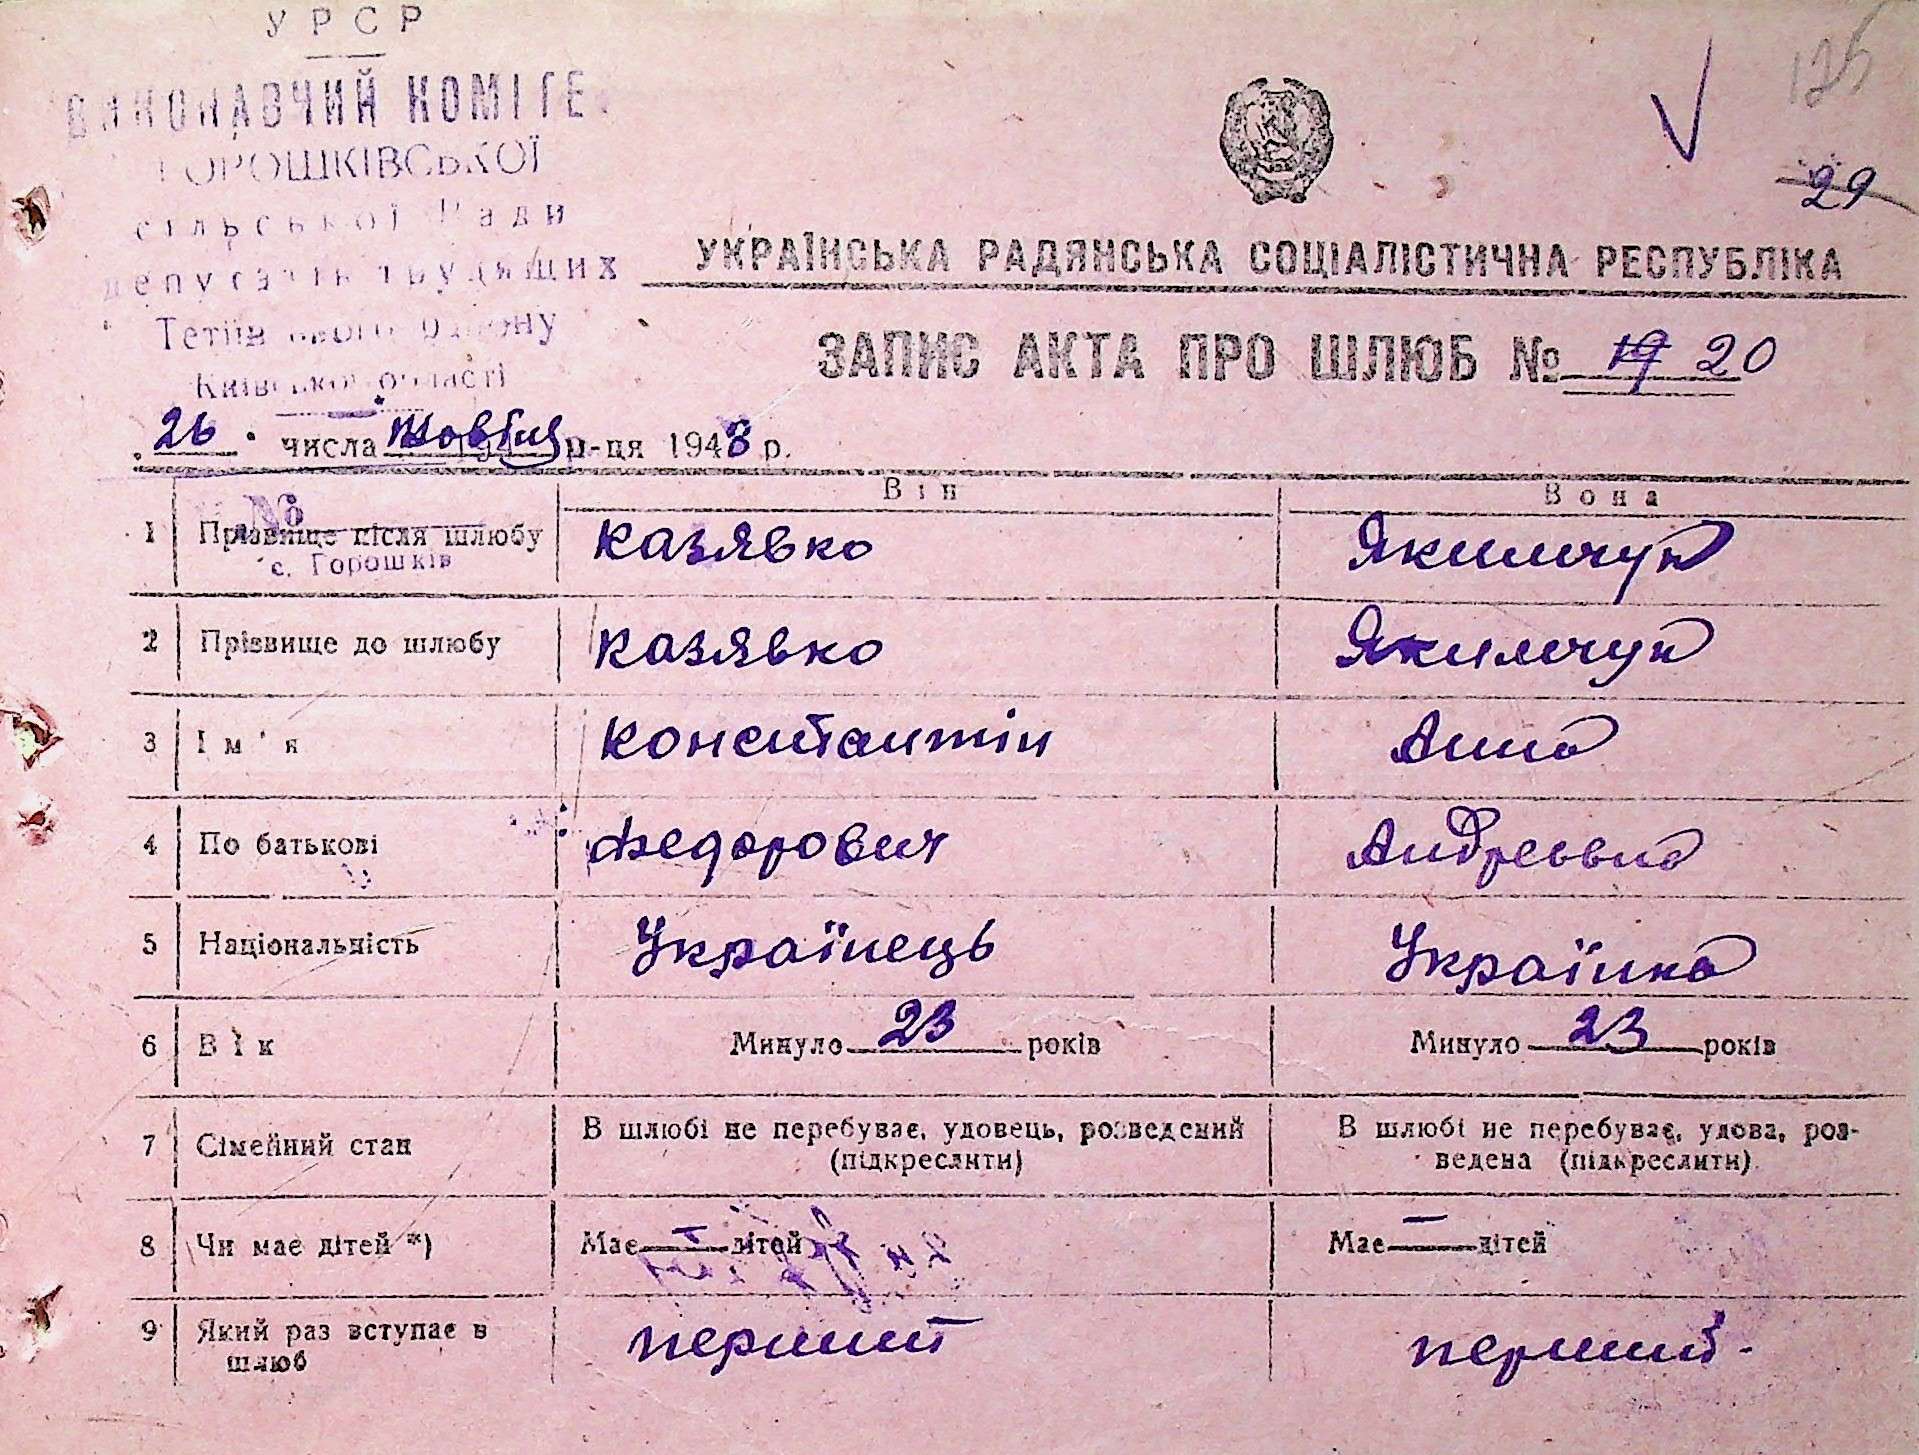 УРСР
ВИКОНАВЧИЙ КОМІТЕ
ГОРОШКІВСЬКОЇ
сільської Ради
депутатів трудящих
Тетіївського району
Київської області
125
29
УКРАЇНСЬКА РАДЯНСЬКА СОЦІАЛІСТИЧНА РЕСПУБЛІКА
ЗАПИС АКТА ПРО ШЛЮБ № 19 20
26 числа Жовтня м-ця 1948 р.
Він Вона
№
1 Прізвище після шлюбу Казявко Якимчук
с. Горошків
2 Прізвище до шлюбу Казявко Якимчук
3 Ім'я Константін Анна
4 По батькові Федорович Андреевна
5 Національність Українець Українка
6 Вік Минуло 23 років Минуло 23 років
7 Сімейний стан В шлюбі не перебуває, удовець, розведений (підкреслити) В шлюбі не перебуває, удова, роз-
ведена (підкреслити)
8 Чи має дітей *) Має — дітей Має — дітей
9 Який раз вступає в шлюб перший перший -